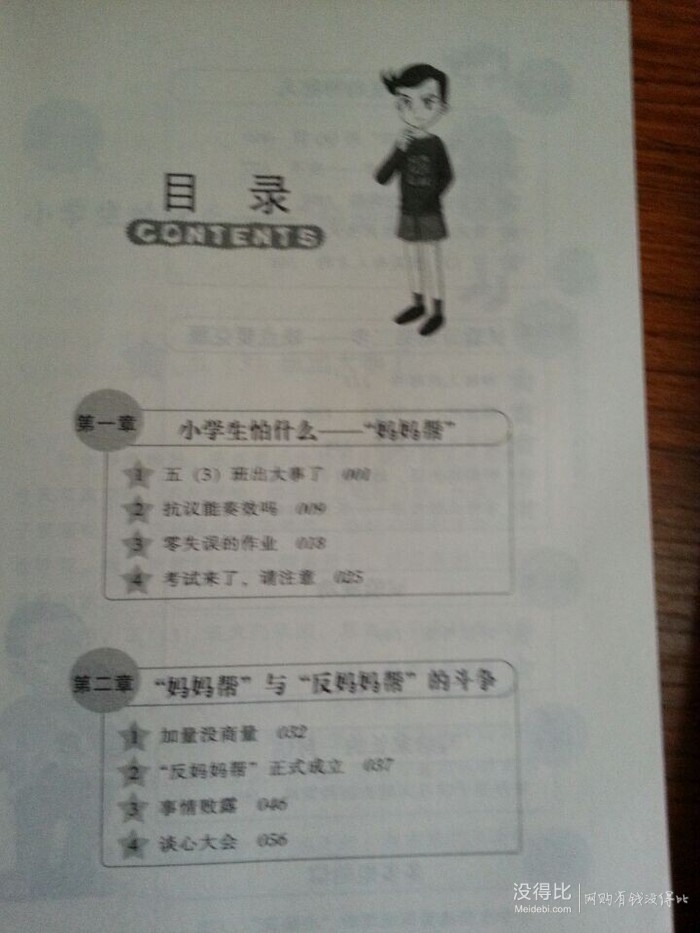 目 录
CONTENTS
第一章 小学生怕什么——“妈妈帮”
1 五(3)班出大事了 001
2 抗议能奏效吗 009
3 零失误的作业 018
4 考试来了,请注意 025
第二章 “妈妈帮”与“反妈妈帮”的斗争
1 加量没商量 032
2 “反妈妈帮”正式成立 037
3 事情败露 046
4 谈心大会 056
没得比 网购有钱没得比
Meidebi.com